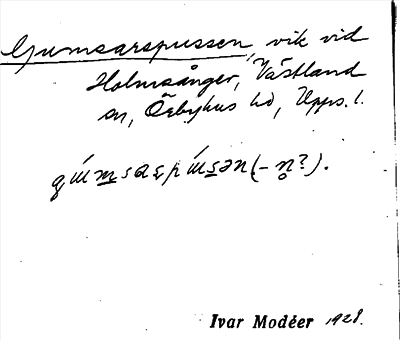 Gumsarspussen, vik vid
Holmsånger, Västland
sn, Örbyhus hd, Upps. l.
Ivar Modéer 1928.